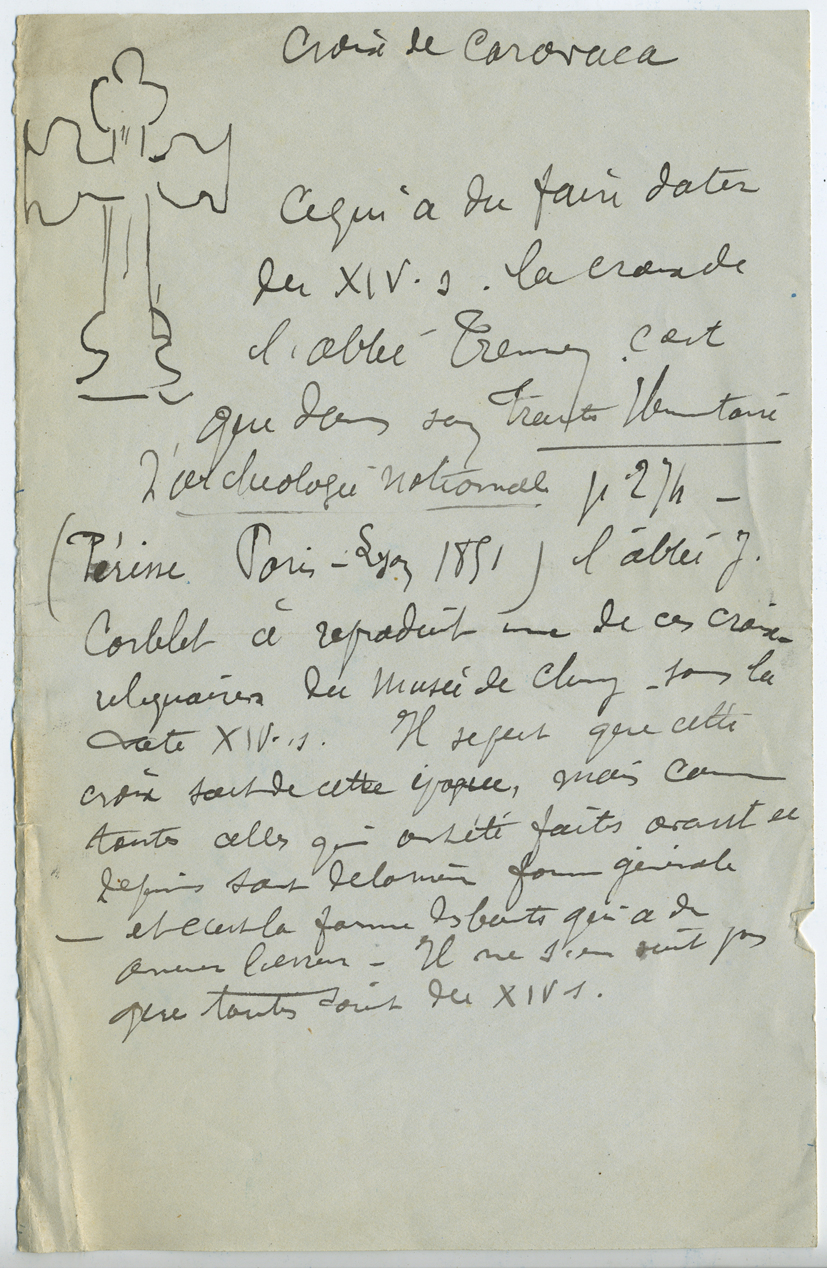 Croix de Caravaca
Ce qui a du faire dater
du XIV. s. la croix de
l'abbé c'est
que dans son Traité élémentaire
d'archéologie nationale p 274 –
(Périsse Paris – Lyon 1851) l'abbé J.
Corblet a reproduit une de ces croix-
reliquaires du Musée de Cluny – sous la
date XIV. s. Il se peut que cette
croix soit de cette époque, mais comme
toutes celles qui ont été faites avant et
depuis sont de la même forme générale
– et c'est la forme des bouts qui a du
amener l'erreur – Il ne s'en suit pas
que toutes soient du XIV s.